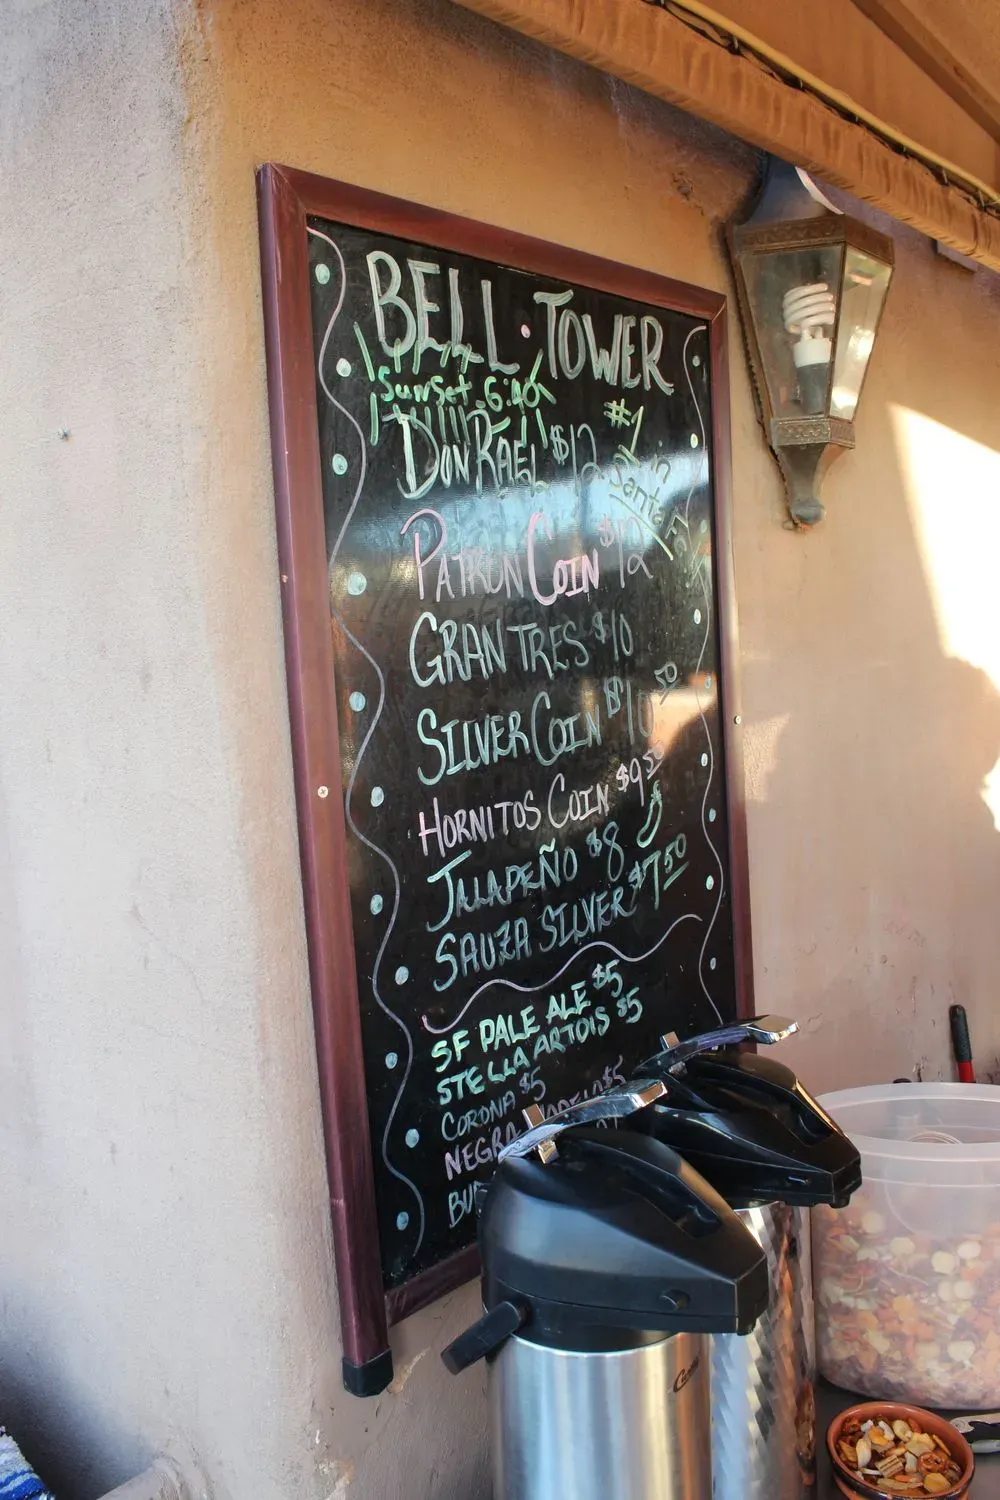 BELL · TOWER
Sunset 6:40
DON RAEL $12
#1 in Santa Fe
PATRON COIN $12
GRAN TRES $10
SILVER COIN $10 50
HORNITOS COIN $9 50
JALAPEÑO $8
SAUZA SILVER $7 50
SF PALE ALE $5
STELLA ARTOIS $5
CORONA $5
NEGRA MODELO $5